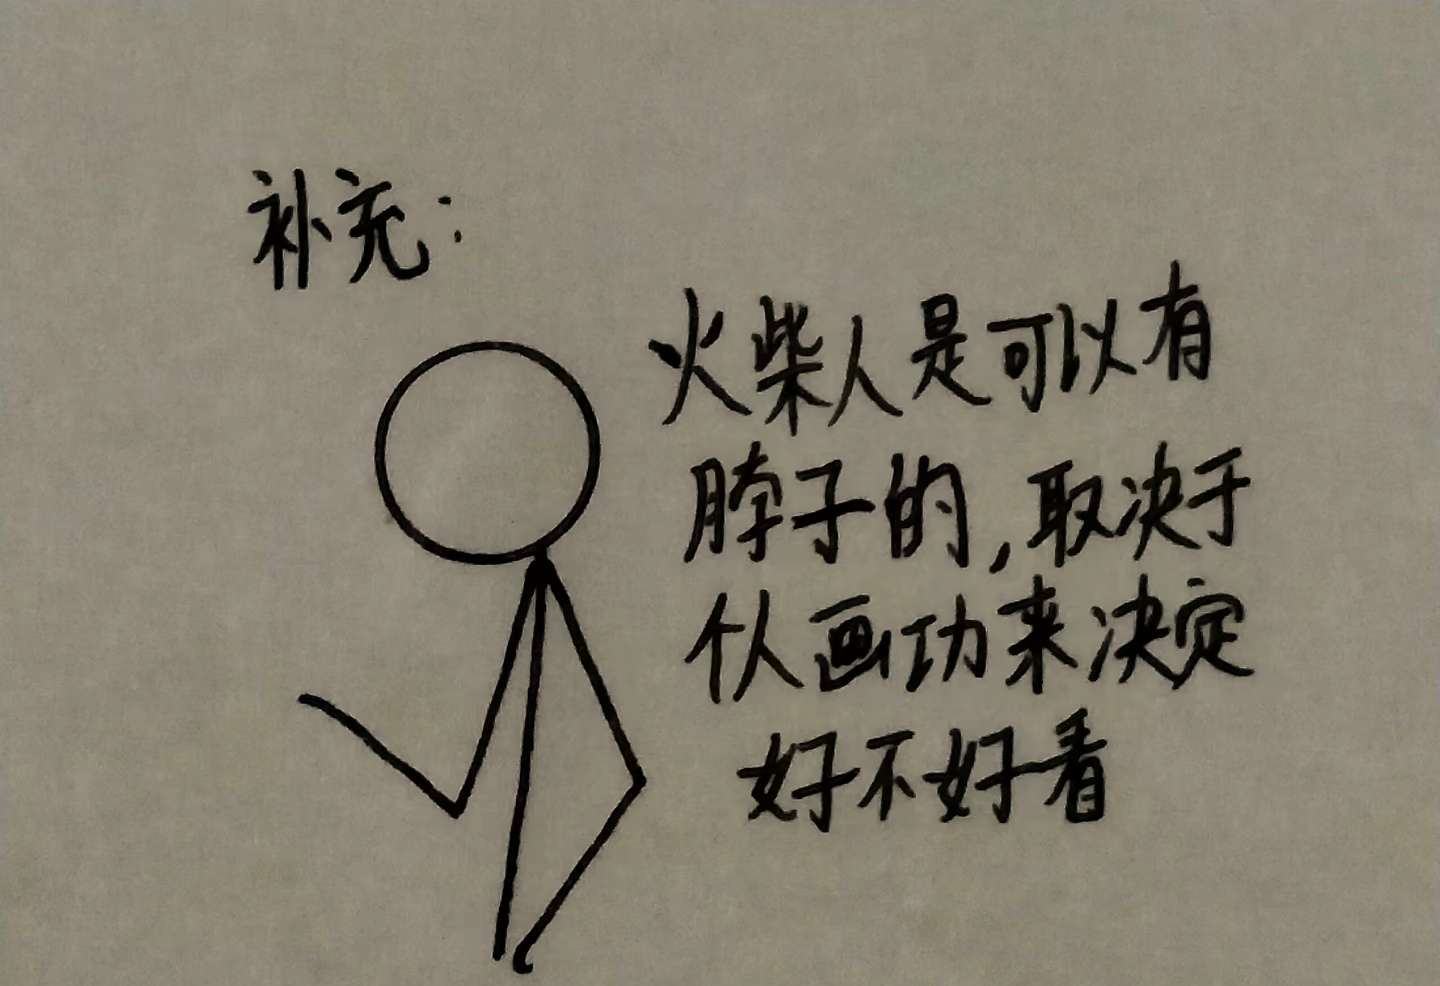 补充：
火柴人是可以有
脖子的，取决于
个人画功来决定
好不好看